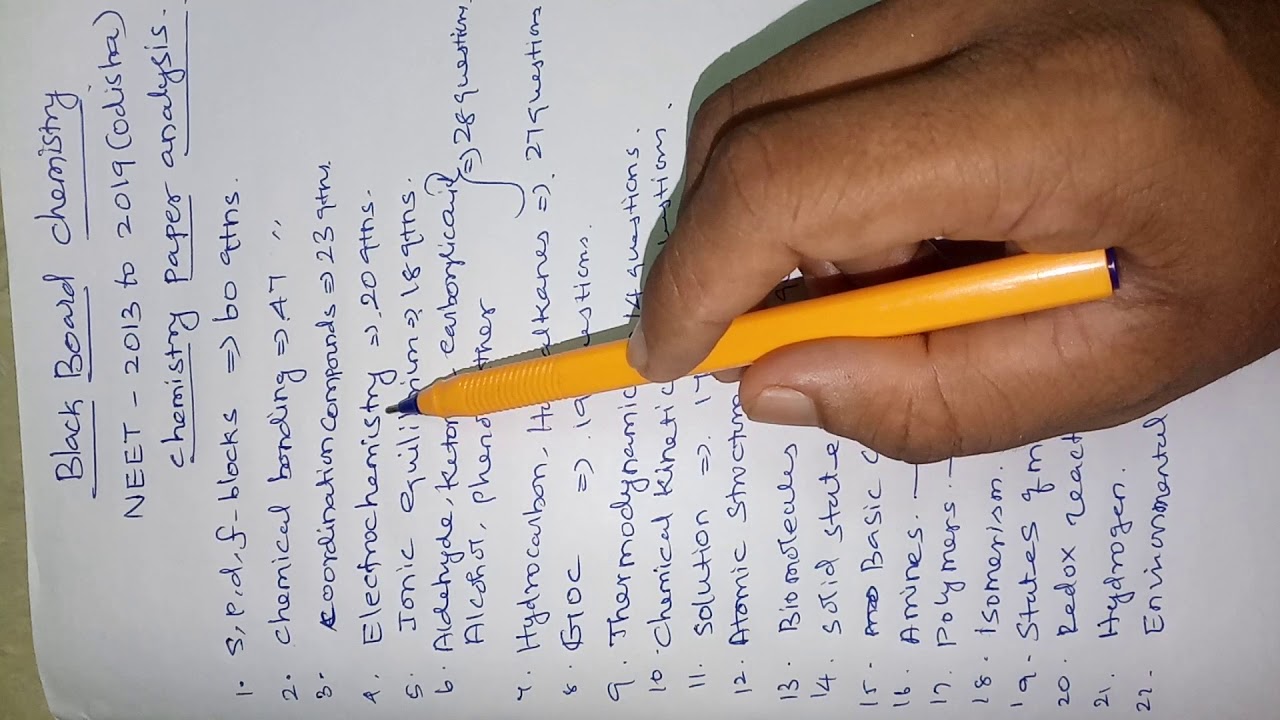 Black Board chemistry
NEET - 2013 to 2019 (odisha)
chemistry paper analysis.
1. s, p, d, f- blocks => 60 qtns.
2. chemical bonding => 47 "
3. coordination compounds => 23 qtns.
4. Electrochemistry => 20 qtns.
5. Ionic => 18 qtns.
6. Aldehyde, carboxylicacid => 28 questions.
Alcohol,
7. Hydrocarbon, => 27 questions
8. GOC => 19
9. Thermodynamic 14 questions.
10. chemical Kinetic
11. Solution =>
12. Atomic Structure
13. Biomolecules
14. Solid state
15. Basic
16. Amines.
17. Polymers.
18. Isomerism.
19. States
20. Redox react
21. Hydrogen.
22. Environmental